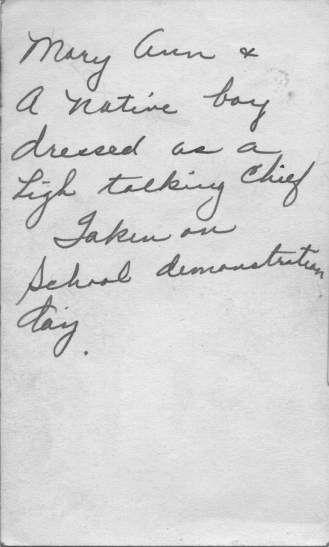 Mary Ann &
A native boy
dressed as a
High talking Chief
Taken on
School demonstration
day.